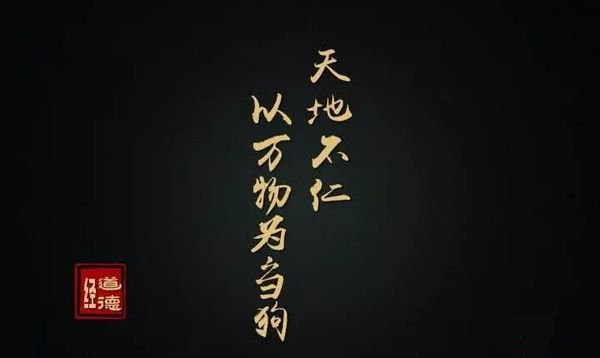 天地不仁
以万物为刍狗
道德
经